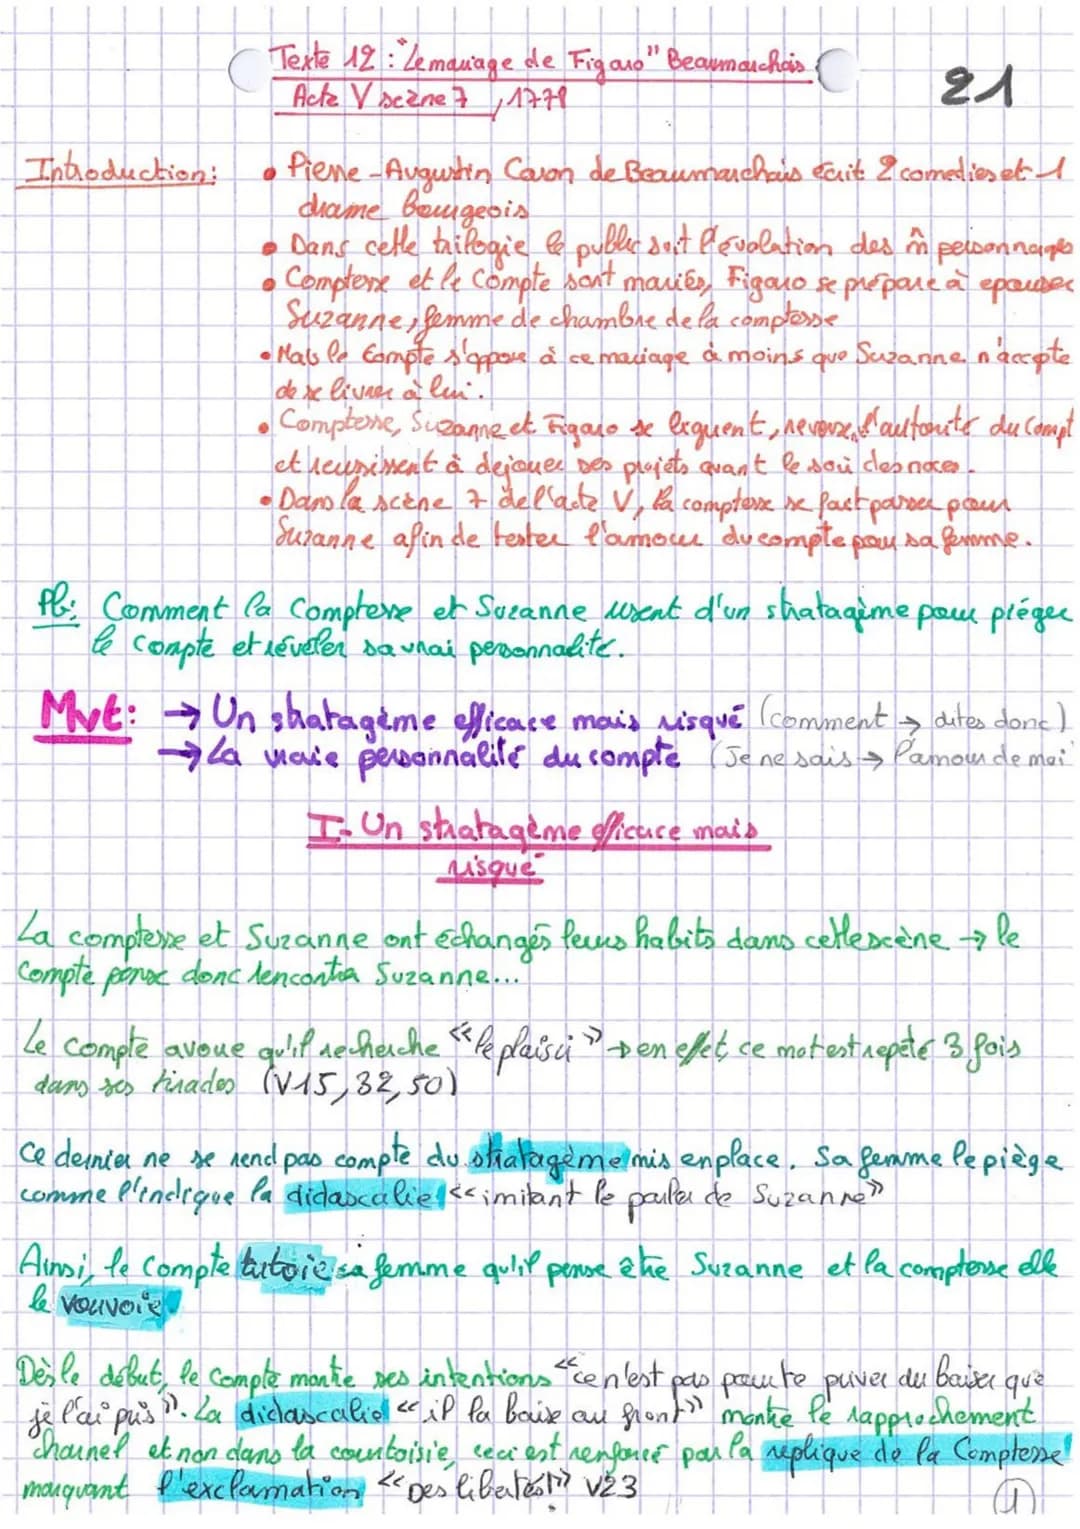 Texte 12 : "Le mariage de Figaro" Beaumarchais
Acte V scène 7, 1778
21
Introduction:
• Pierre-Augustin Caron de Beaumarchais écrit 2 comedies et 1
drame bourgeois
• Dans cette trilogie le public suit l'évolution des m̂ personnages
• Comptesse et le Compte sont mariés, Figaro se prépare à epouser
Suzanne, femme de chambre de la comptesse
• Mais le Compte s'oppose à ce mariage à moins que Suzanne n'accepte
de se livrer à lui.
• Comptesse, Suzanne et Figaro se liguent, l'autorité du Compt
et reussissent à dejouer ses projets avant le soir des noces.
• Dans la scène 7 de l'acte V, la comptesse se fait passer pour
Suzanne afin de tester l'amour du compte pour sa femme.
Pb: Comment la Comptesse et Suzanne usent d'un stratagème pour piéger
le compte et révéler sa vrai personnalité.
Mvt: → Un stratagème efficace mais risqué (comment → dites donc)
→ La vraie personnalité du compte (Je ne sais → l'amour de moi
I- Un stratagème efficace mais
risqué
La comptesse et Suzanne ont échangés leurs habits dans cette scène → le
Compte pense donc rencontra Suzanne...
Le compte avoue qu'il recherche «le plaisir» → en effet, ce mot est repeté 3 fois
dans ses tirades (V15, 32, 50)
Ce dernier ne se rend pas compte du stratagème mis en place. Sa femme le piège
comme l'indique la didascalie «imitant le parler de Suzanne»
Ainsi, le Compte tutoie sa femme qu'il pense être Suzanne et la comptesse elle
le vouvoie
Dès le début, le Compte montre ses intentions «ce n'est pas pour te priver du baiser que
je l'ai pris». La didascalie «il la baise au front» montre le rapprochement
charnel et non dans la courtoisie, ceci est renforcé par la replique de la Comptesse
marquant l'exclamation «Des libertés!» V23
1